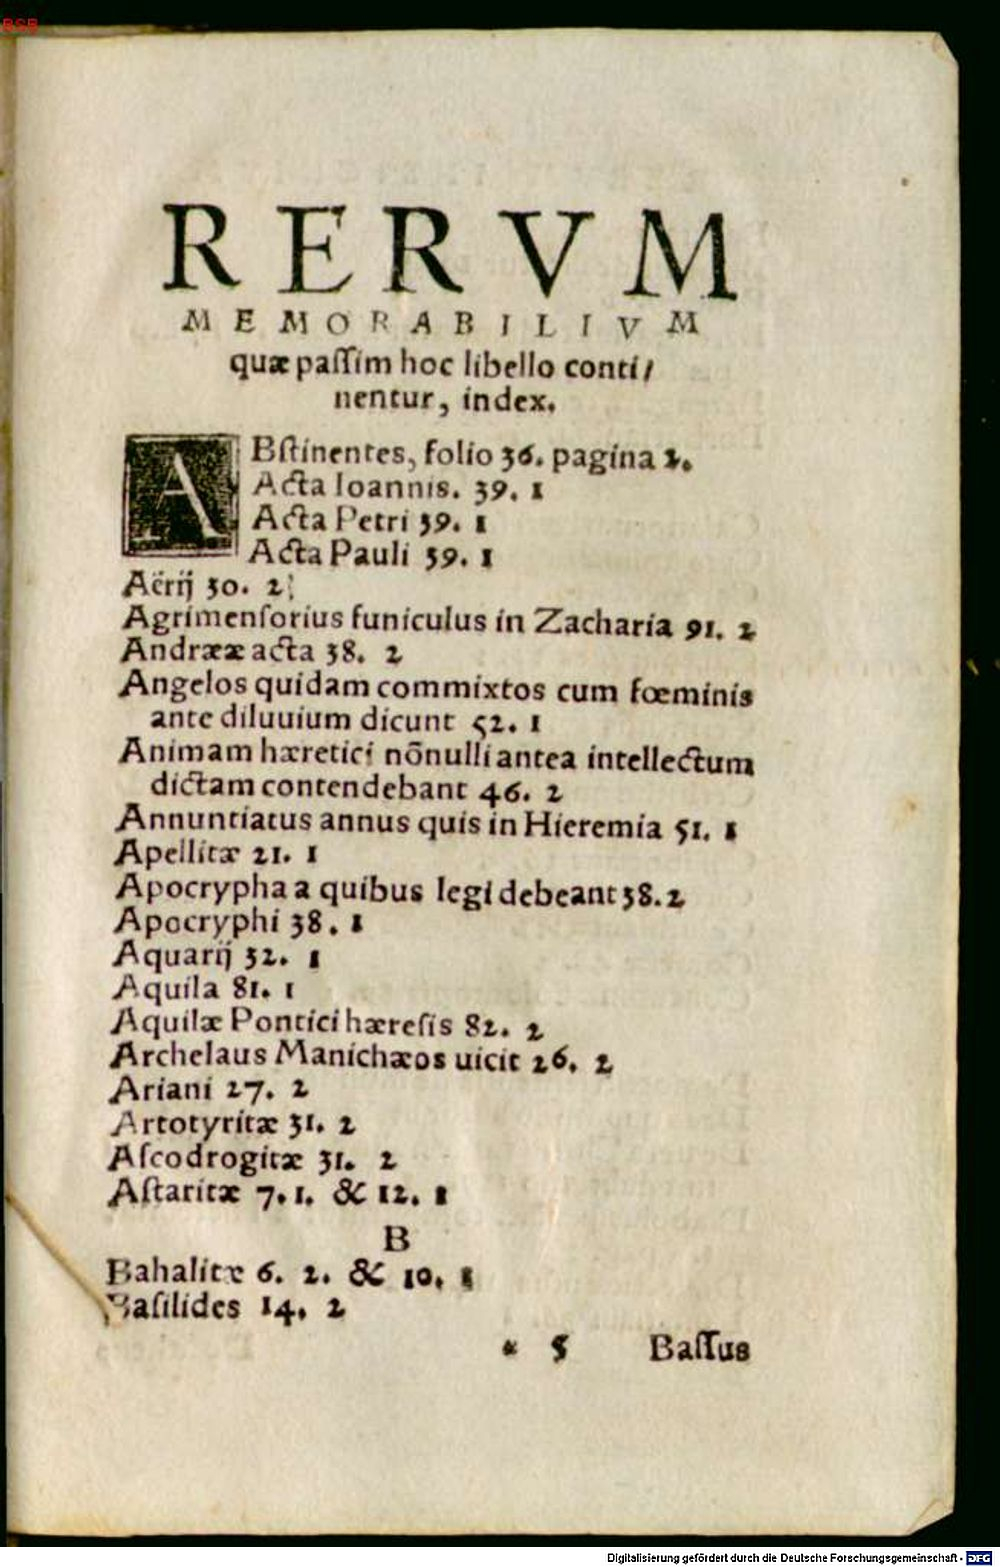 BSB
RERVM
MEMORABILIVM
quæ paſſim hoc libello conti/
nentur, index.
ABſtinentes, folio 36. pagina 2.
Acta Ioannis. 39. 1
Acta Petri 39. 1
Acta Pauli 39. 1
Aërij 30. 2
Agrimenſorius funiculus in Zacharia 91. 2
Andrææ acta 38. 2
Angelos quidam commixtos cum fœminis
ante diluuium dicunt 52. 1
Animam hæretici nõnulli antea intellectum
dictam contendebant 46. 2
Annuntiatus annus quis in Hieremia 51. 1
Apellitæ 21. 1
Apocrypha a quibus legi debeant 38. 2
Apocryphi 38. 1
Aquarij 32. 1
Aquila 81. 1
Aquilæ Pontici hæreſis 82. 2
Archelaus Manichæos uicit 26. 2
Ariani 27. 2
Artotyritæ 31. 2
Aſcodrogitæ 31. 2
Aſtaritæ 7. 1. & 12. 1
B
Bahalitæ 6. 2. & 10. 1
Baſilides 14. 2
* 5 Baſſus
Digitalisierung gefördert durch die Deutsche Forschungsgemeinschaft - DFG